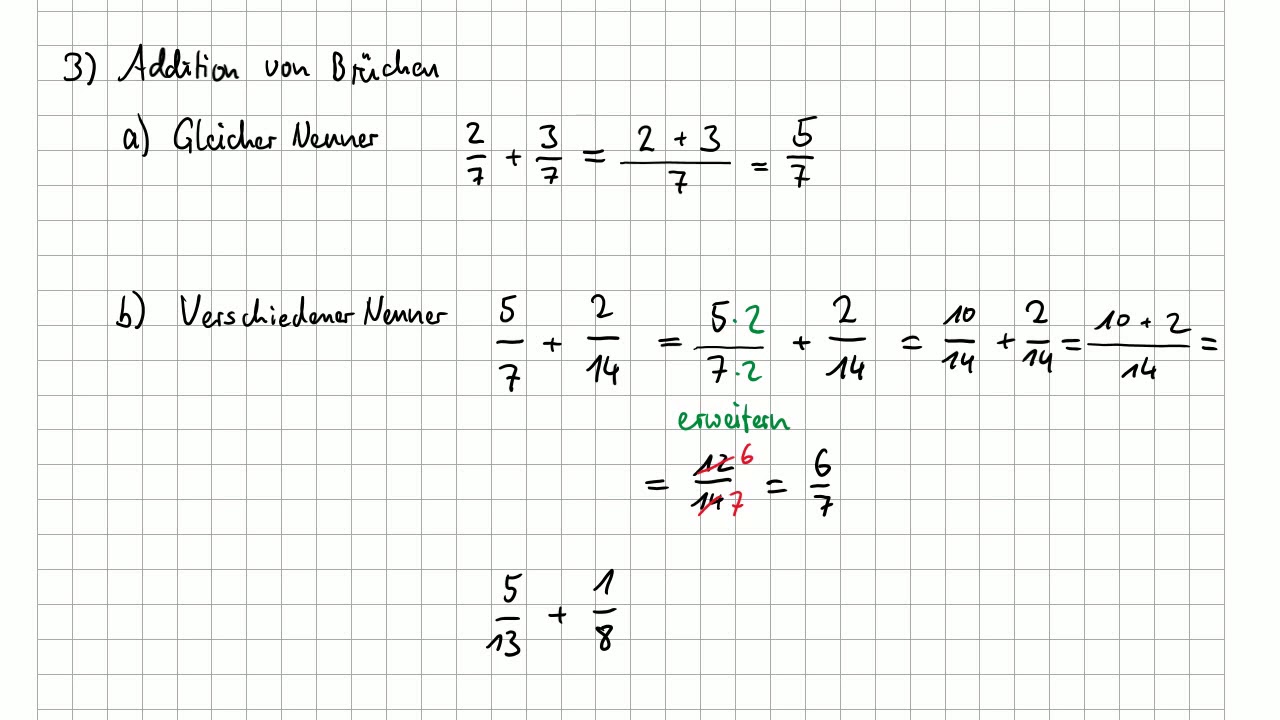 3) Addition von Brüchen
a) Gleicher Nenner 2/7 + 3/7 = (2 + 3)/7 = 5/7
b) Verschiedener Nenner 5/7 + 2/14 = (5·2)/(7·2) + 2/14 = 10/14 + 2/14 = (10 + 2)/14 =
erweitern
= 12/14 6/7 = 6/7
5/13 + 1/8